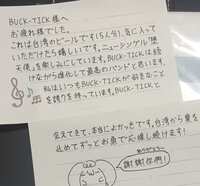 BUCK-TICK様へ
お疲れ様でした。
これは台湾のビールです(5人分)、気に入って
いただけたら嬉しいです。ニューシングル「想
天使」を楽しみにしています。BUCK-TICKは続
けながら進化して最高のバンドと思います。
私はいつもBUCK-TICKが好きなこと
を誇りを持っています。BUCK-TICKと
会えてきて、本当によかったです。台湾から愛を
止めてずっとお身で応援し続けます!
謝謝你們!